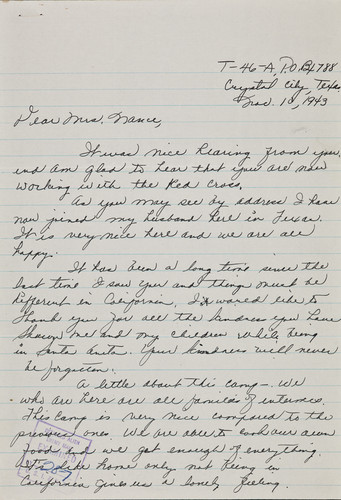 T-46-A, P.O. Bx 788
Crystal City, Texas
Nov. 10, 1943
Dear Mrs. Nance,
It was nice hearing from you
and am glad to hear that you are now
working with the Red Cross.
As you may see by address I have
now joined my husband here in Texas.
It is very nice here and we are all
happy.
It has been a long time since the
last time I saw you and things must be
different in California. I would like to
thank you for all the kindness you have
shown me and my children while being
in Santa Anita. Your kindness will never
be forgotten.
A little about this camp - We
who are here are all families of internees.
This camp is very nice compared to the
previous ones. We are able to cook our own
food and we get enough of everything.
It's like home only not being in
California gives us a lonely feeling.